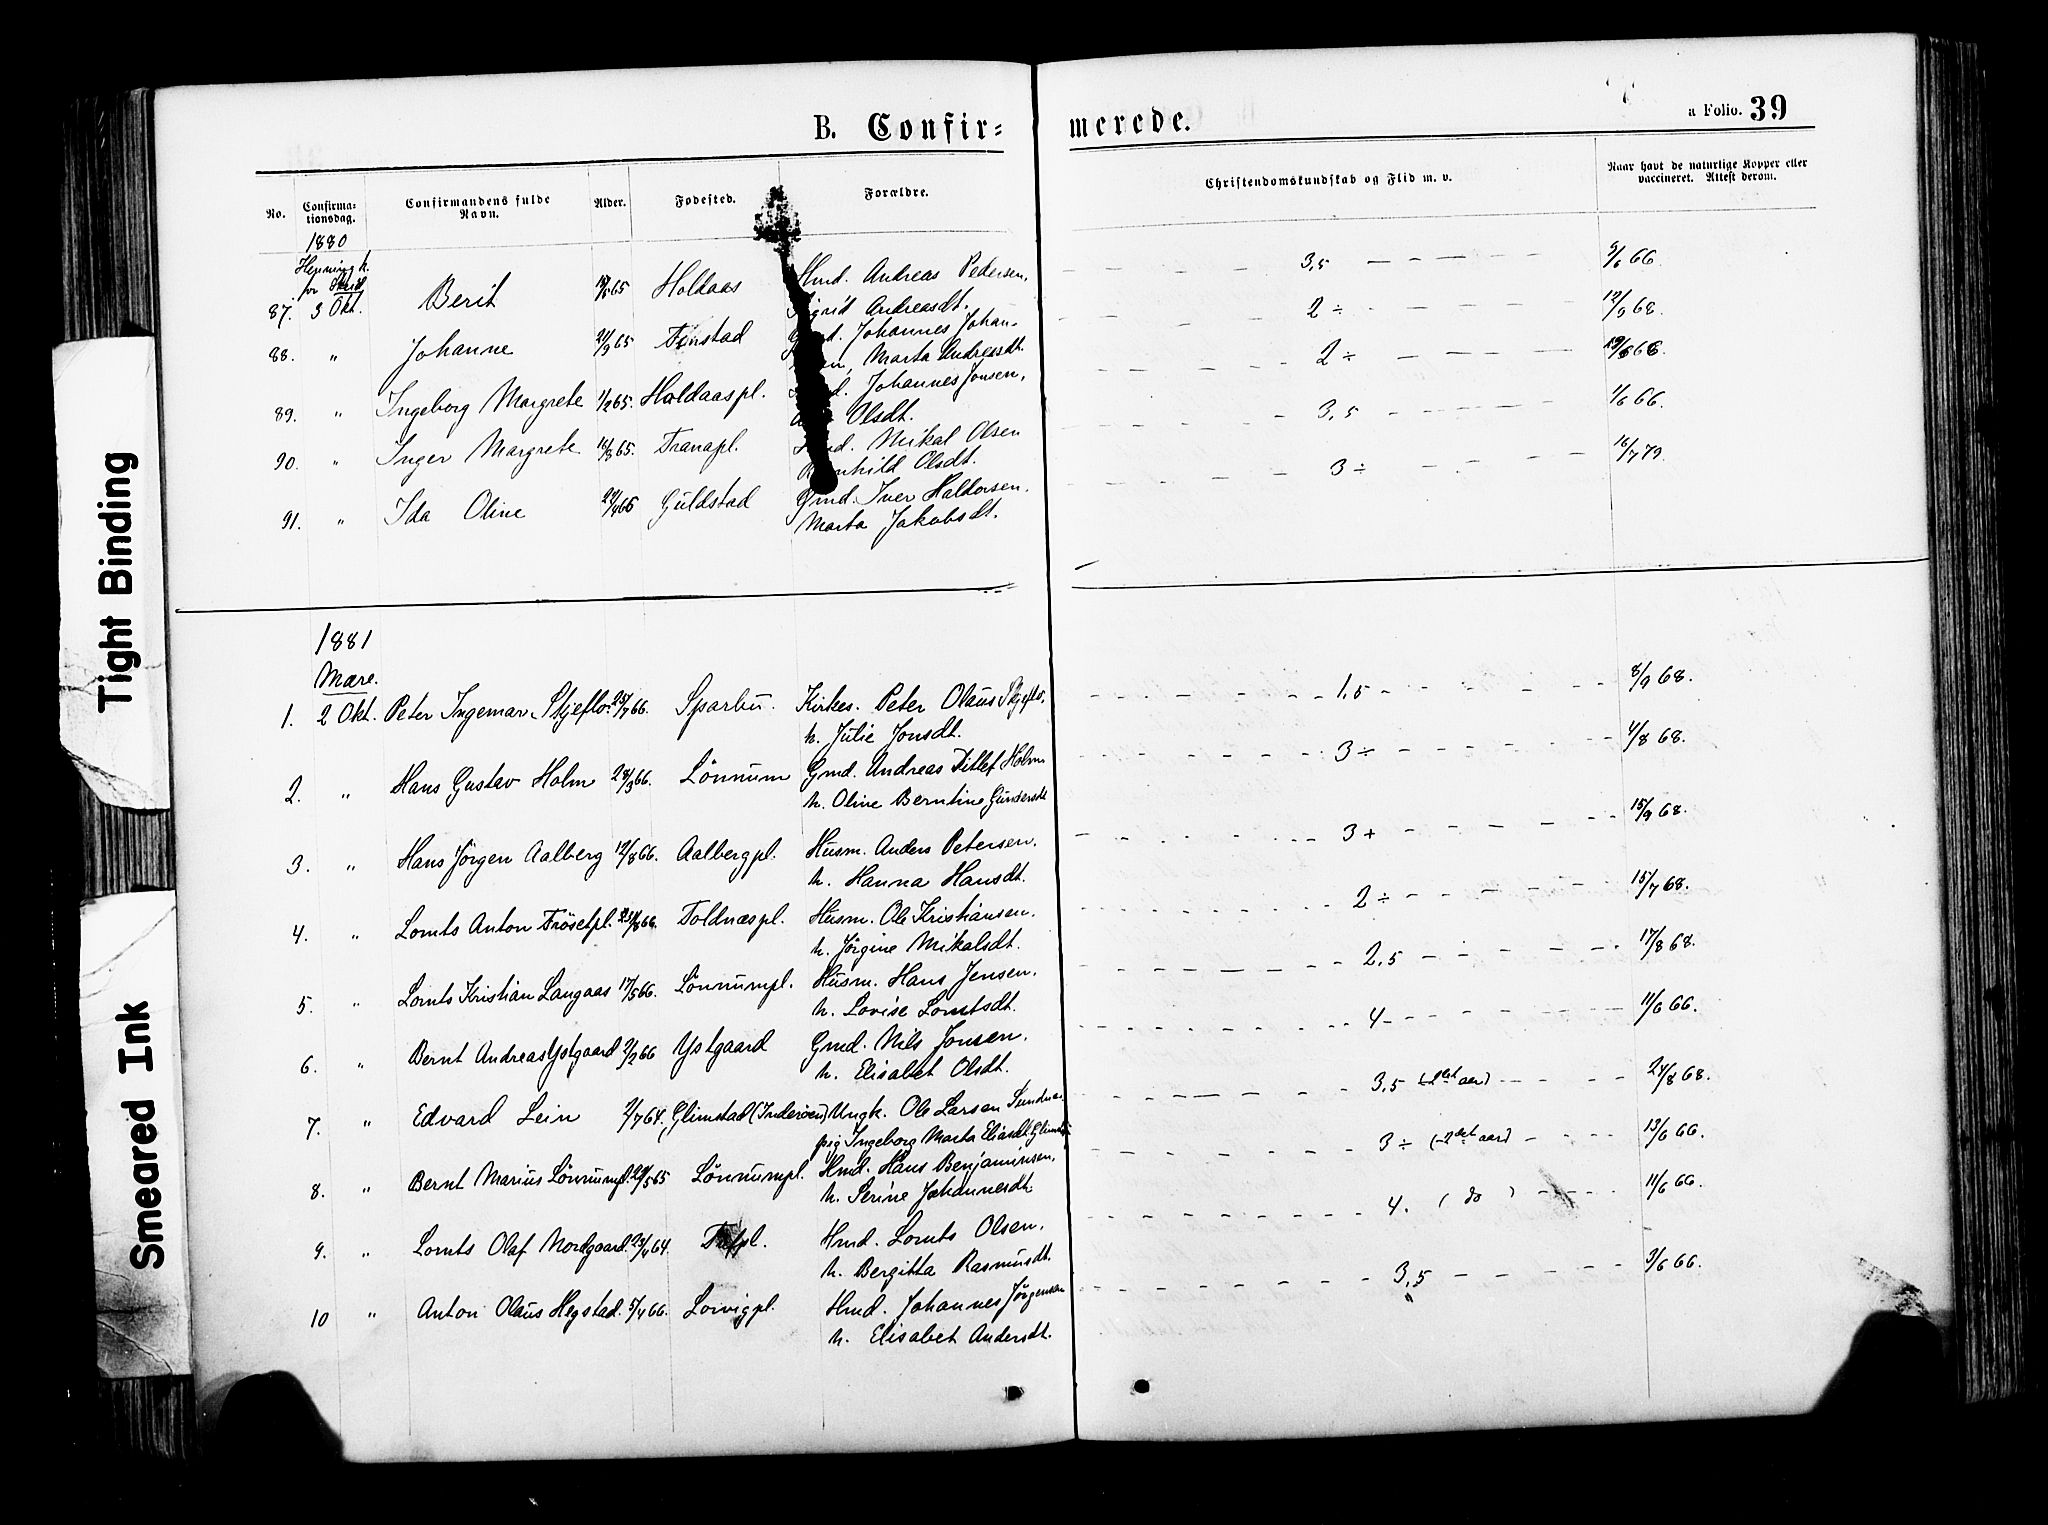 B. Confir=
merede.
a Folio. 39
No.
Confirma-
tionsdag.
Confirmandens fulde
Navn.
Alder.
Fødested.
Forældre.
Christendomskundskab og Flid m. v.
Naar havt de naturlige Kopper eller
vaccineret. Attest derom.
1880
Henning k.
for
87. 3 Okt. Berit 65 Holdaas Hmd. Andreas Pedersen, 3,5 9/6 66
Andreasdt.
88. " Johanne 21/9 65 Johannes Johan- 2 ÷ 12/9 68.
Marta Andreasdt.
89. " Ingeborg Margrete 1/2 65. Holdaaspl. Johannes Jonsen, 2 ÷ 66.
Olsdt.
90. " Inger Margrete 65. Tranapl. Mikal Olsen 3,5 1/6 66.
Olsdt.
91. " Ida Oline Guldstad Gmd. Iver Haldorsen. 3 ÷ 16/7 79.
Marta Jakobsdt.
1881
Mære.
1. 2 Okt. Peter Ingemar Skjeflo 7 66. Sparbu. Kirkes. Peter Olaus Skjeflo, 1,5 8/9 68.
h. Julie Jonsdt.
2. " Hans Gustav Holm 28/3 66. Lönnum Gmd. Andreas Ditlef Holm 3 ÷ 4/8 68.
h. Oline Berntine Gundersdt
3. " Hans Jörgen Aalberg 19/8 66. Aalbergpl. Husm. Anders Petersen. 3 + 15/9 68.
h. Hanna Hansdt.
4. " Lomts Anton Trösetpl. 66. Toldnæspl. Husm. Ole Kristiansen. 2 ÷ 15/7 68.
h. Jörgine Mikalsdt.
5. " Lomts Kristian Langaas 17/5 66. Lönnumpl. Husm. Hans Jensen. 2,5 17/8 68.
h. Lovise Lomtsdt.
6. " Bernt Andreas Ystgaard 2/2 66 Ystgaard Gmd. Nils Jonsen. 4 11/6 66.
h. Elisabet Olsdt.
7. " Edvard Lein 2/7 64. Glimstad (Inderöen) Ungk. Ole Larsen Sundnæs. 3,5 (2det aar) 24/8 68.
pig Ingeborg Marta Eliasdt.
8. " Bernt Marius Lönnumpl. 29/5 65 Lönnumpl. Hmd. Hans Benjaminsen. 3 ÷ (2det aar) 13/6 66.
h. Serine Johannesdt.
9. " Lomts Olaf Nordgaard. 64. Hmd. Lomts Olsen. 4. ( do ) 11/6 66.
h. Bergitta Rasmusdt.
10 " Anton Olaus Hegstad. 5/4 66. Lorvigpl. Hmd. Johannes Jörgensen 3,5 3/6 66.
h. Elisabet Andersdt.
Tight Binding
Smeared Ink